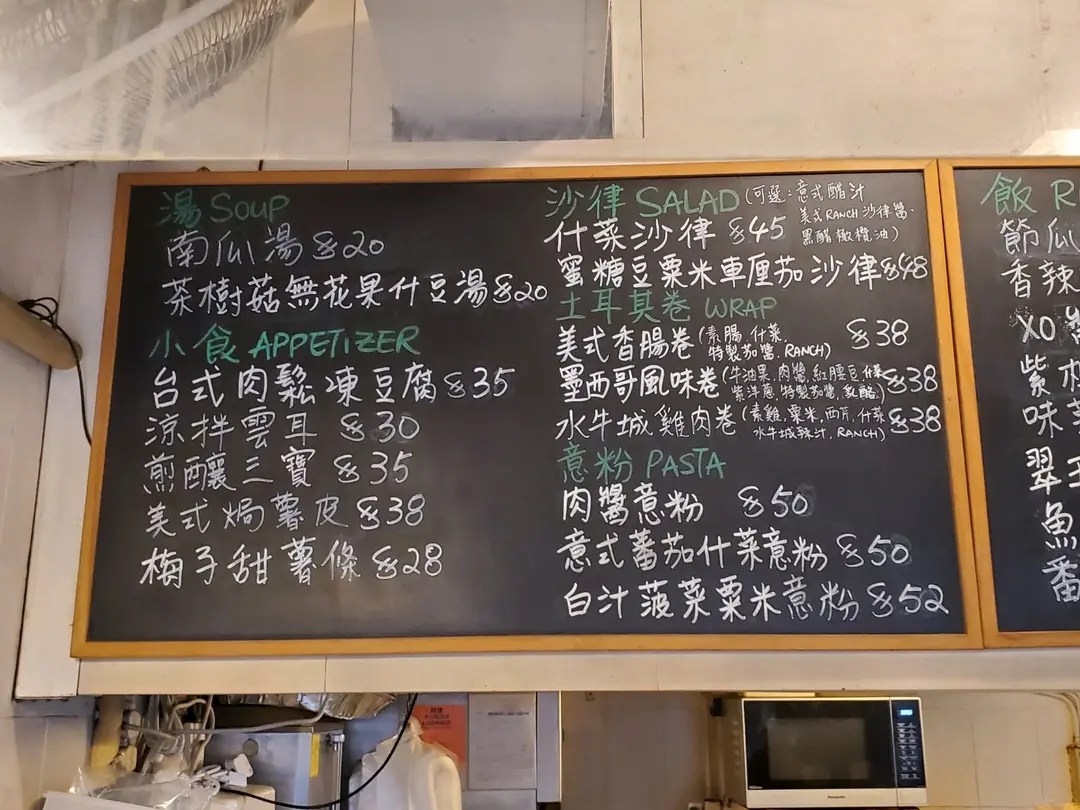 湯 SOUP
南瓜湯 $20
茶樹菇無花果什豆湯 $20
小食 APPETIZER
台式肉鬆凍豆腐 $35
涼拌雲耳 $30
煎釀三寶 $35
美式焗薯皮 $38
梅子甜薯條 $28
沙律 SALAD (可選：意式醋汁
美式RANCH沙律醬.
黑醋橄欖油)
什菜沙律 $45
蜜糖豆粟米車厘茄沙律 $48
土耳其卷 WRAP
美式香腸卷 (素腸,什菜, $38
特製茄醬, RANCH)
墨西哥風味卷 (牛油果,肉醬,紅腰豆,什菜 $38
紫洋蔥,特製茄醬,乳酪)
水牛城雞肉卷 (素雞,粟米,西芹,什菜 $38
水牛城辣汁, RANCH)
意粉 PASTA
肉醬意粉 $50
意式蕃茄什菜意粉 $50
白汁菠菜粟米意粉 $52
飯 R
節瓜
香辣
XO醬
紫
味
翠
魚
番
Panasonic